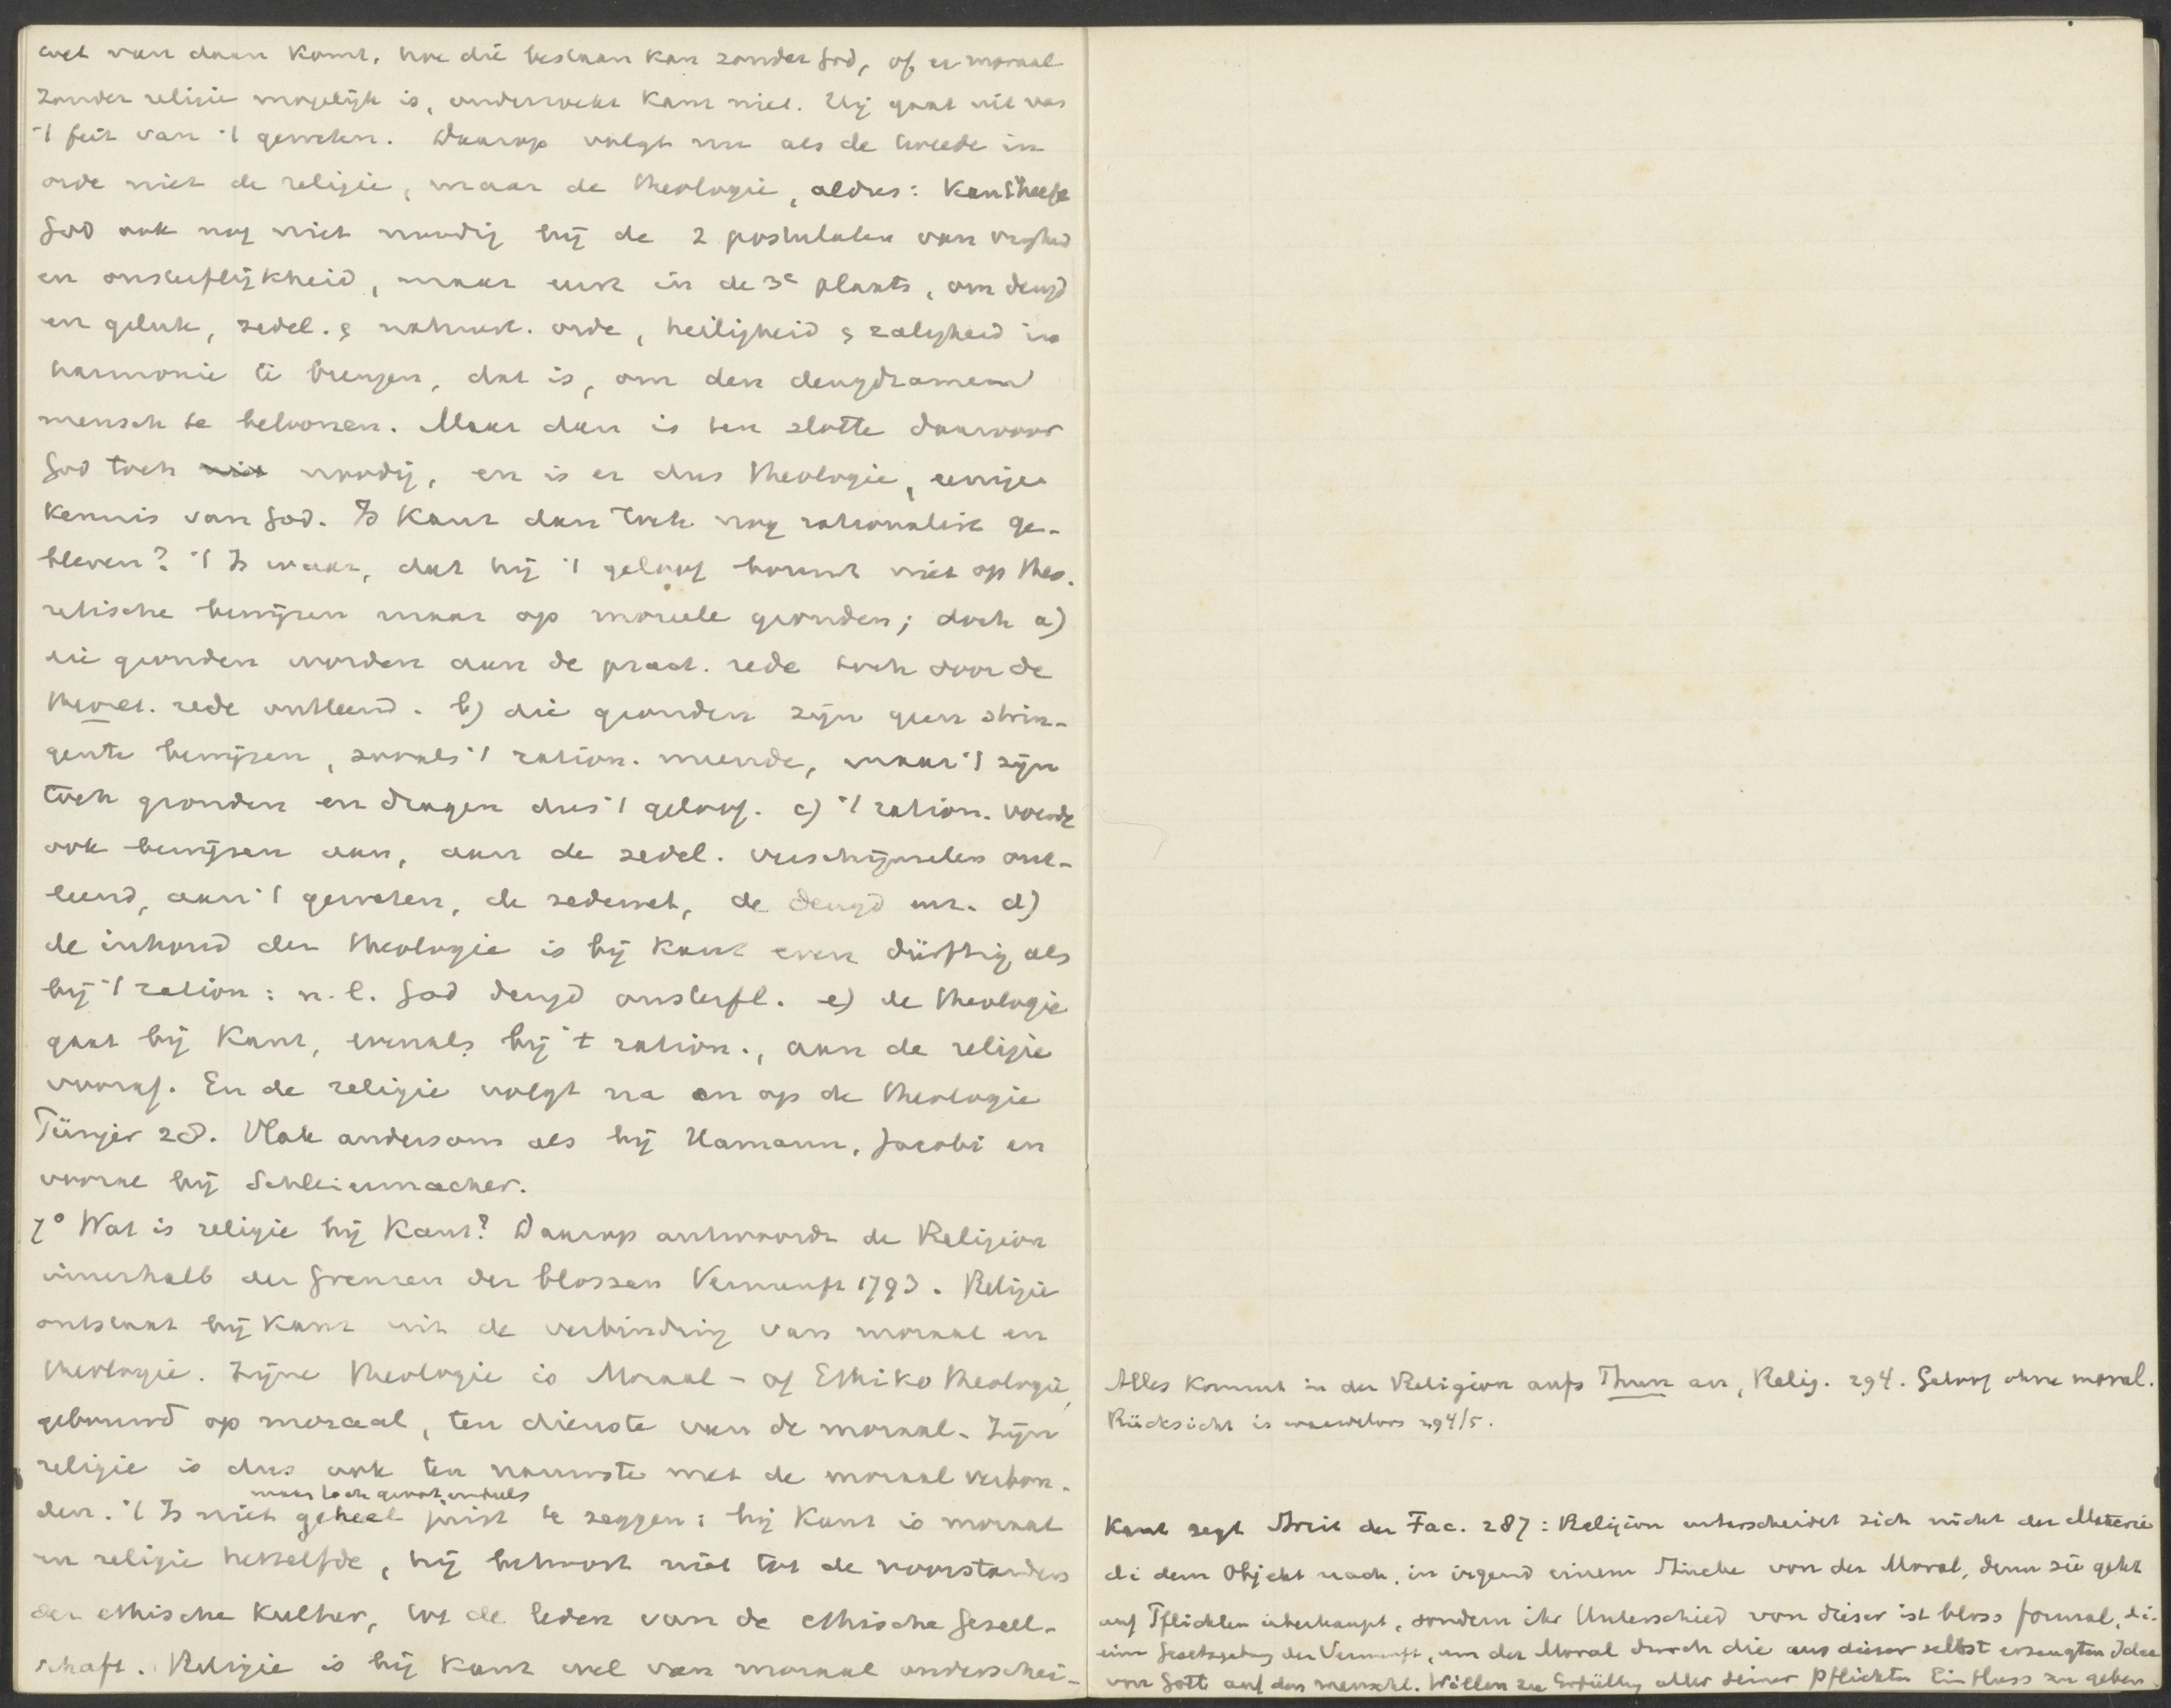 wet van daan komt, hoe die bestaan kan zonder God, of er moraal
zonder religie mogelijk is, onderzoekt Kant niet. Hij gaat uit van
't feit van 't geweten. Daarop volgt nu als de tweede in
orde niet de religie, maar de theologie, aldus: Kant heeft
God ook nog niet noodig bij de 2 postulaten van vrijheid
en onsterflijkheid, maar eerst in de 3e plaats, om deugd
en geluk, zedel. & natuurl. orde, heiligheid & zaligheid in
harmonie te brengen, dat is, om den deugdzamen
mensch te beloonen. Maar dan is ten slotte daarvoor
God toch niet noodig, en is er dus theologie, eenige
kennis van God. Is Kant dan toch nog rationalist ge-
bleven? 't Is waar, dat hij 't geloof bouwt niet op theo-
retische bewijzen maar op moreele gronden; doch a)
die gronden worden aan de pract. rede toch door de
theoret. rede ontleend. b) die gronden zijn geen strin-
gente bewijzen, zooals 't ration. meende, maar 't zijn
toch gronden en dragen dus 't geloof. c) 't ration. voerde
ook bewijzen aan, aan de zedel. verschijnselen ont-
leend, aan 't geweten, de zedewet, de deugd enz. d)
de inhoud der theologie is bij Kant even dürftig als
bij 't ration: n.l. God deugd onsterfl. e) de theologie
gaat bij Kant, evenals bij 't ration., aan de religie
vooraf. En de religie volgt na en op de theologie
Tünjer 28. Vlak andersom als bij Hamann, Jacobi en
vooral bij Schleiermacher.
7° Wat is religie bij Kant? Daarop antwoordt de Religion
innerhalb der Grenzen der blossen Vernunft 1793. Religie
ontstaat bij Kant uit de verbinding van moraal en
theologie. Zijne theologie is Moraal- of Ethikotheologie,
gebouwd op moraal, ten dienste van de moraal. Zijn
religie is dus ook ten nauwste met de moraal verbon-
maar toch grootendeels
den. 't Is niet geheel juist te zeggen: bij Kant is moraal
en religie hetzelfde, hij behoort niet tot de voorstanders
der ethische Kultur, tot de leden van de ethische Gesell-
schaft. Religie is bij Kant wel van moraal onderschei-
Alles kommt in der Religion aufs Thun an, Relig. 294. Geloof ohne moral.
Rücksicht is waardeloos 294/5.
Kant zegt Streit der Fac. 287: Religion unterscheidet sich nicht der Materie
di dem Objekt nach, in irgend einem Stücke von der Moral, denn sie geht
auf Pflichten überhaupt, sondern ihr Unterschied von dieser ist bloss formal, di.
eine Gesetzgebung der Vernunft, um der Moral durch die aus dieser selbst erzeugten Idee
von Gott auf den menschl. Willen zu Erfüllung aller seiner Pflichten Einfluss zu geben.